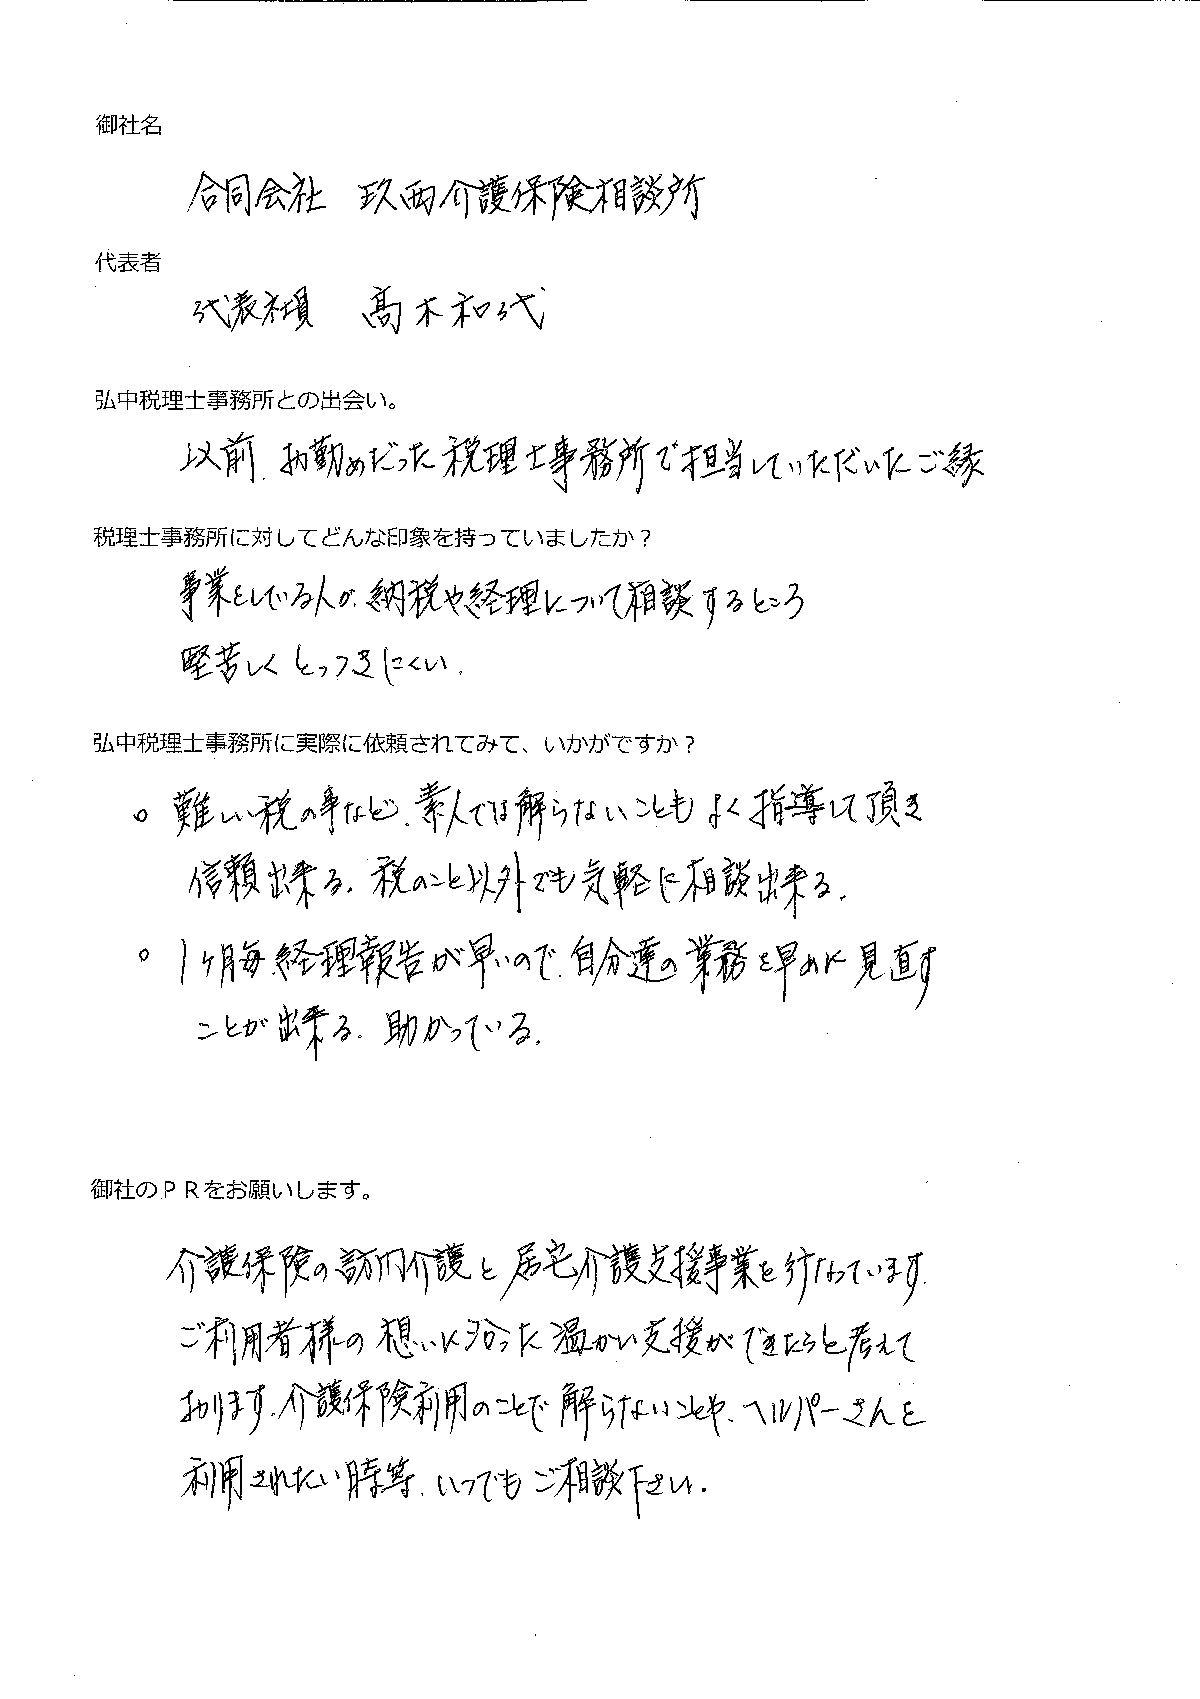 御社名
合同会社 玖西介護保険相談所
代表者
代表社員 高木和代
弘中税理士事務所との出会い。
以前、お勤めだった税理士事務所で担当していただいたご縁
税理士事務所に対してどんな印象を持っていましたか？
事業をしている人が、納税や経理について相談するところ
堅苦しくとっつきにくい。
弘中税理士事務所に実際に依頼されてみて、いかがですか？
○ 難しい税の事など、素人では解らないこともよく指導して頂き
信頼出来る。税のこと以外でも気軽に相談出来る。
○ 1ヶ月毎、経理報告が早いので、自分達の業務を早めに見直す
ことが出来る。助かっている。
御社のＰＲをお願いします。
介護保険の訪問介護と居宅介護支援事業を行なっています。
ご利用者様の想いに沿った温かい支援ができたらと考えて
おります。介護保険利用のことで解らないことや、ヘルパーさんを
利用されたい時等、いつでもご相談下さい。